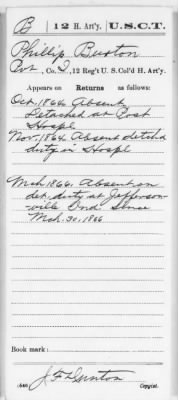 B | 12 H. Art'y. | U.S.C.T.
Phillip Buxton
Pvt, Co. I, 12 Reg't U. S. Col'd H. Art'y.
Appears on Returns as follows:
Oct. 1866. Absent
Detached at Post
Hospl
Nov. 1866. Absent detchd
duty in Hospl
Mch 1866. Absent on
det. duty at Jefferson-
ville Ind since
Mch. 30, 1866
Book mark:
(546)
Copyist.